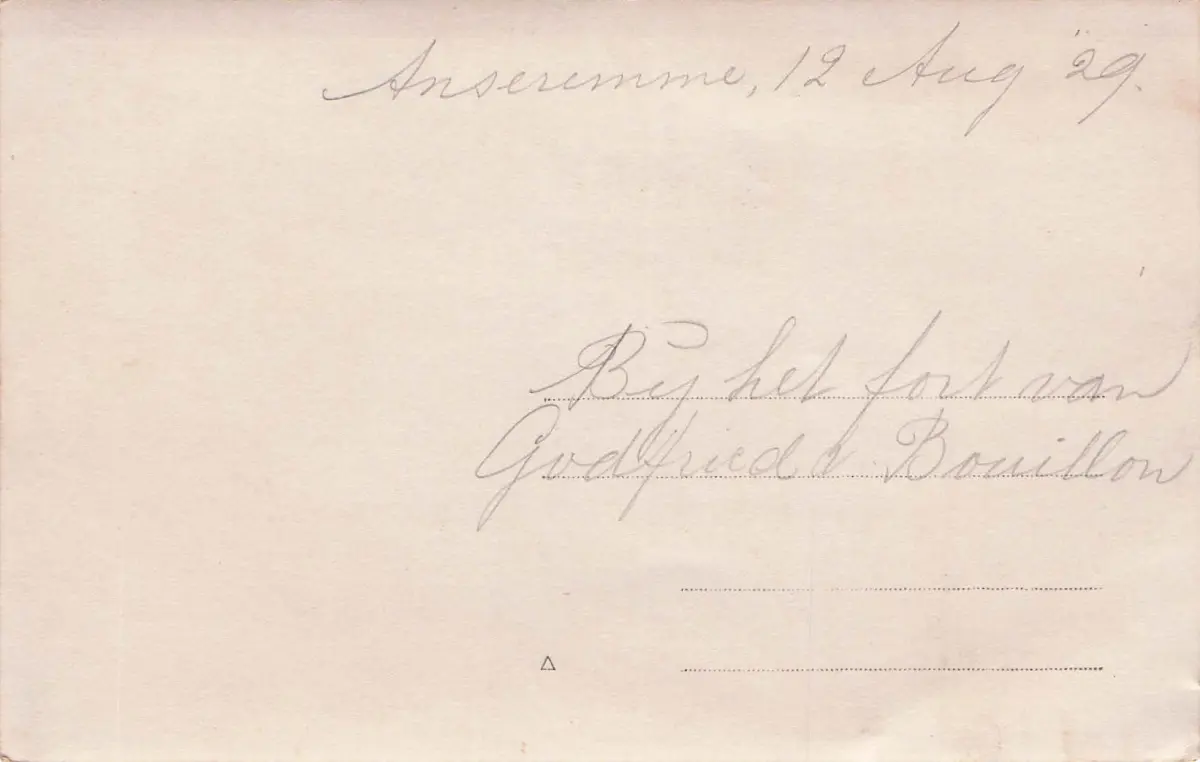 Anseremme, 12 Aug '29.
Bij het fort van
Godfried v. Bouillon